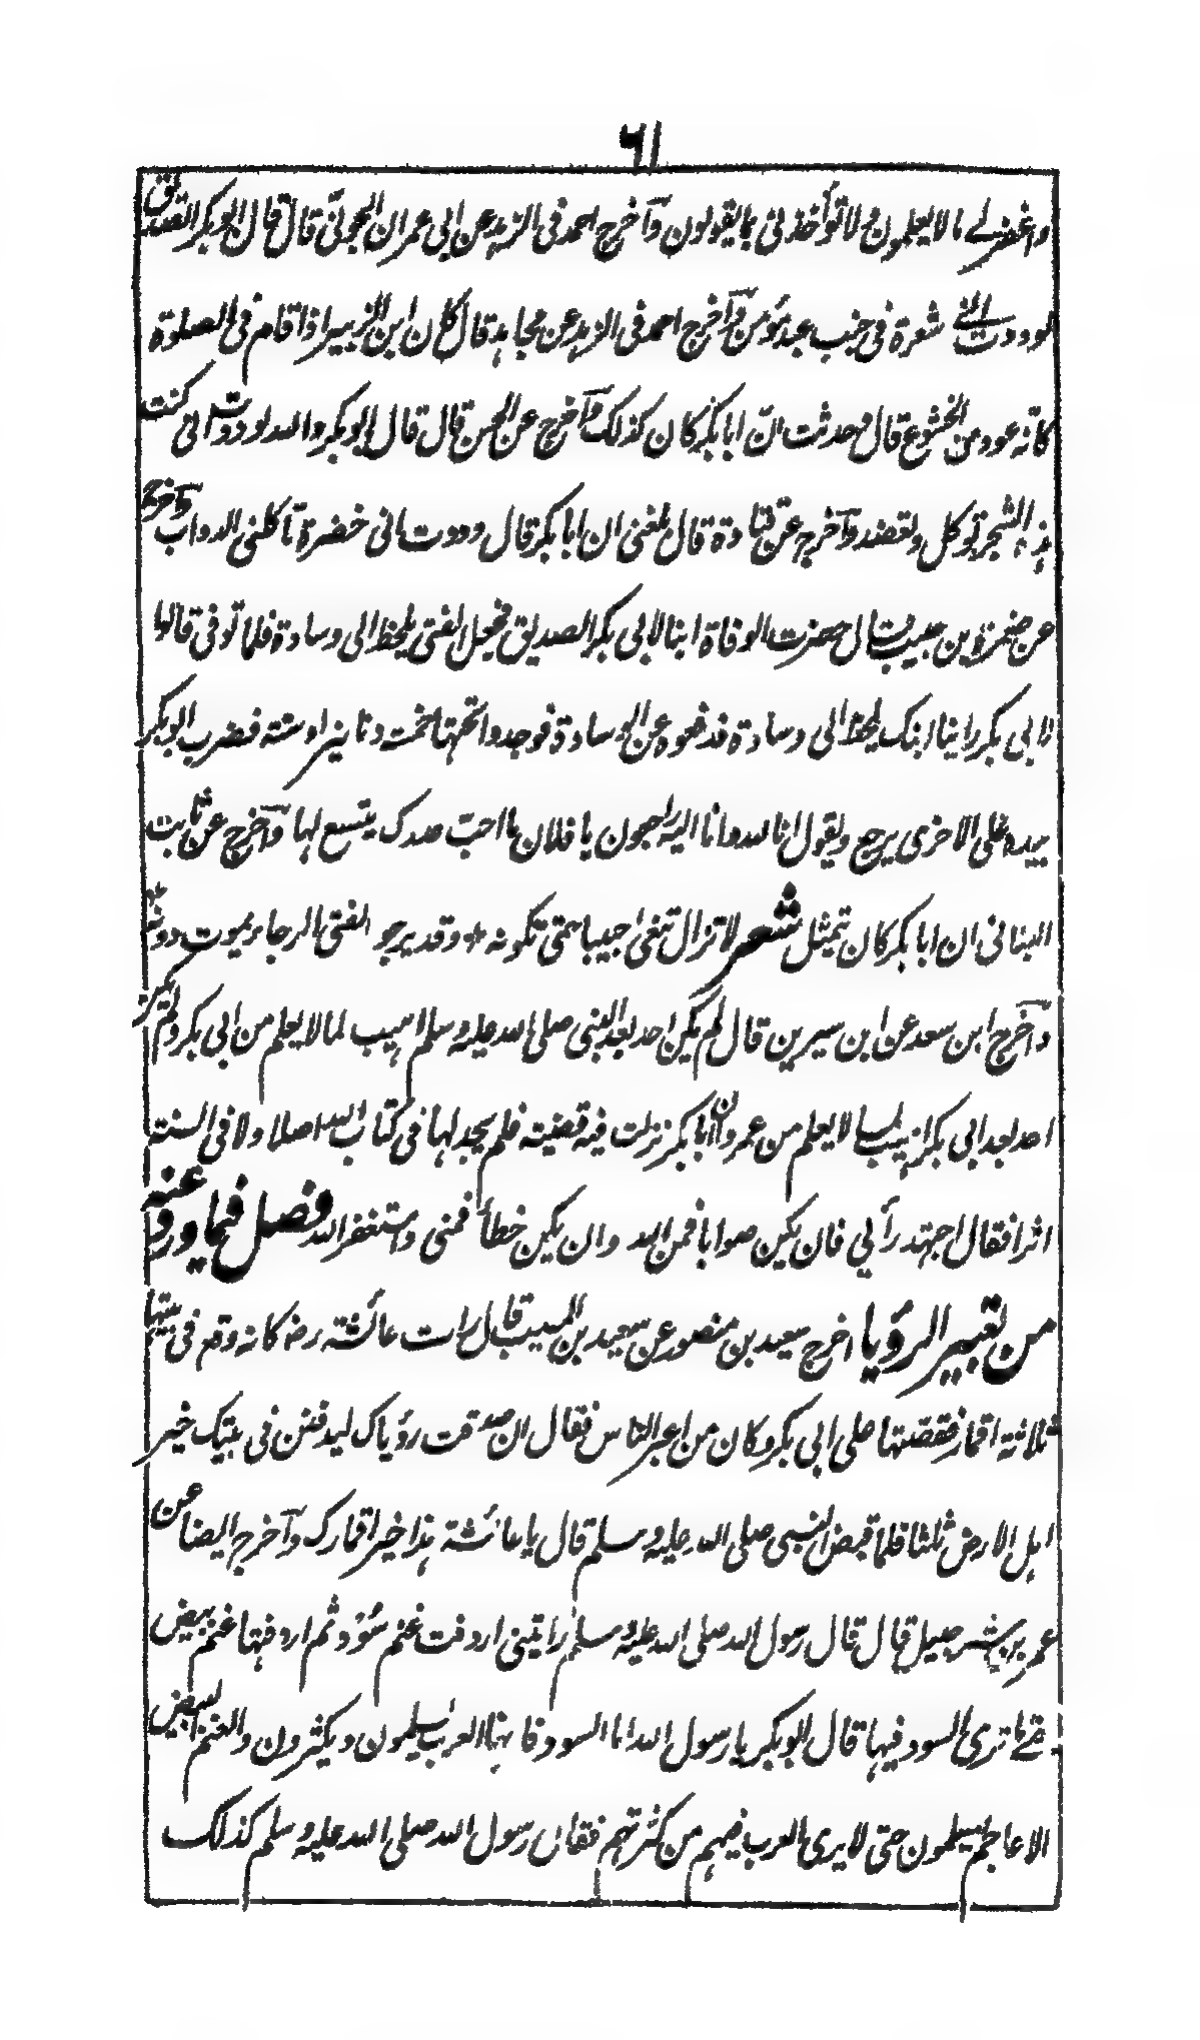 ٦١
واغفر لے مالا يعلمون ولا تؤاخذنی بما يقولون وآخرج احمد فی الزہد عن ابی عمران الجونیّ قال قال ابو بکر الصديق
لوددت انی شعرة فی جنب عبد مؤمن وآخرج احمد فی الزہد عن مجاہد قال کان ابن الزبير اذا قام فی الصلوة
کانہ عود من الخشوع قال وحدثت انّ ابا بکر کان کذلک وآخرج عن الحسن قال قال ابو بکر والله لوددت انی کنت
ہذہ الشجر توکل وتعضد وآخرج عن قتادة قال بلغنی ان ابا بکر قال وددت انی خضرة تاکلنی الدواب وآخرج
عن ضمرة بن حبيب قال حضرت الوفاة ابنا لابی بکر الصديق فجعل الفتی يلحظ الی وسادة فلما توفی قالوا
لابی بکر راينا ابنک يلحظ الی وسادة فدفعوه عن الوسادة فوجدوا تحتها خمسة دنانير او ستة فضرب ابو بکر
بيده علی الاخری يرجع ويقول انا لله وانا اليہ راجعون يا فلان ما احسب جلدک يتسع لہا وآخرج عن ثابت
البنانی ان ابا بکر کان يتمثل شعر لا تزال تنعی حبيبا حتی تکونہ ٭ وقد يرجو الفتی الرجاء يموت دونہ
وآخرج ابن سعد عن ابن سيرين قال لم يکن احد بعد النبی صلی الله عليہ وسلم اہيب لما لا يعلم من ابی بکر ولم يکن
احد بعد ابی بکر اہيب لما لا يعلم من عمر وان ابا بکر نزلت فيہ قضيتہ فلم يجد لہا فی کتاب الله اصلا ولا فی السنتہ
اثرا فقال اجتہد رأيی فان يکن صوابا فمن الله وان يکن خطأ فمنی واستغفر الله فصل فيما ورد عنہ
من تعبير الرؤيا اخرج سعيد بن منصور عن سعيد بن المسيب قال رات عائشتہ رضہ کانہ وقع فی بيتہا
ثلاثة اقمار فقصتها علی ابی بکر وکان من اعبر الناس فقال ان صدقت رؤياک ليدفنن فی بيتک خير
اہل الارض ثلثا فلما قبض النبی صلی الله عليہ وسلم قال يا عائشة ہذا خير اقمارک وآخرج ايضا عن
عمر بن شرحبيل قال قال رسول الله صلی الله عليہ وسلم رايتنی اردفت غنم سود ثم اردفتها غنم بيض
حتے ما تری السود فيہا قال ابو بکر يا رسول الله اما السود فانہا العرب يسلمون ويکثرون والغنم البيض
الاعاجم يسلمون حتی لا يری العرب فيہم من کثرتہم فقال رسول الله صلی الله عليہ وسلم کذلک